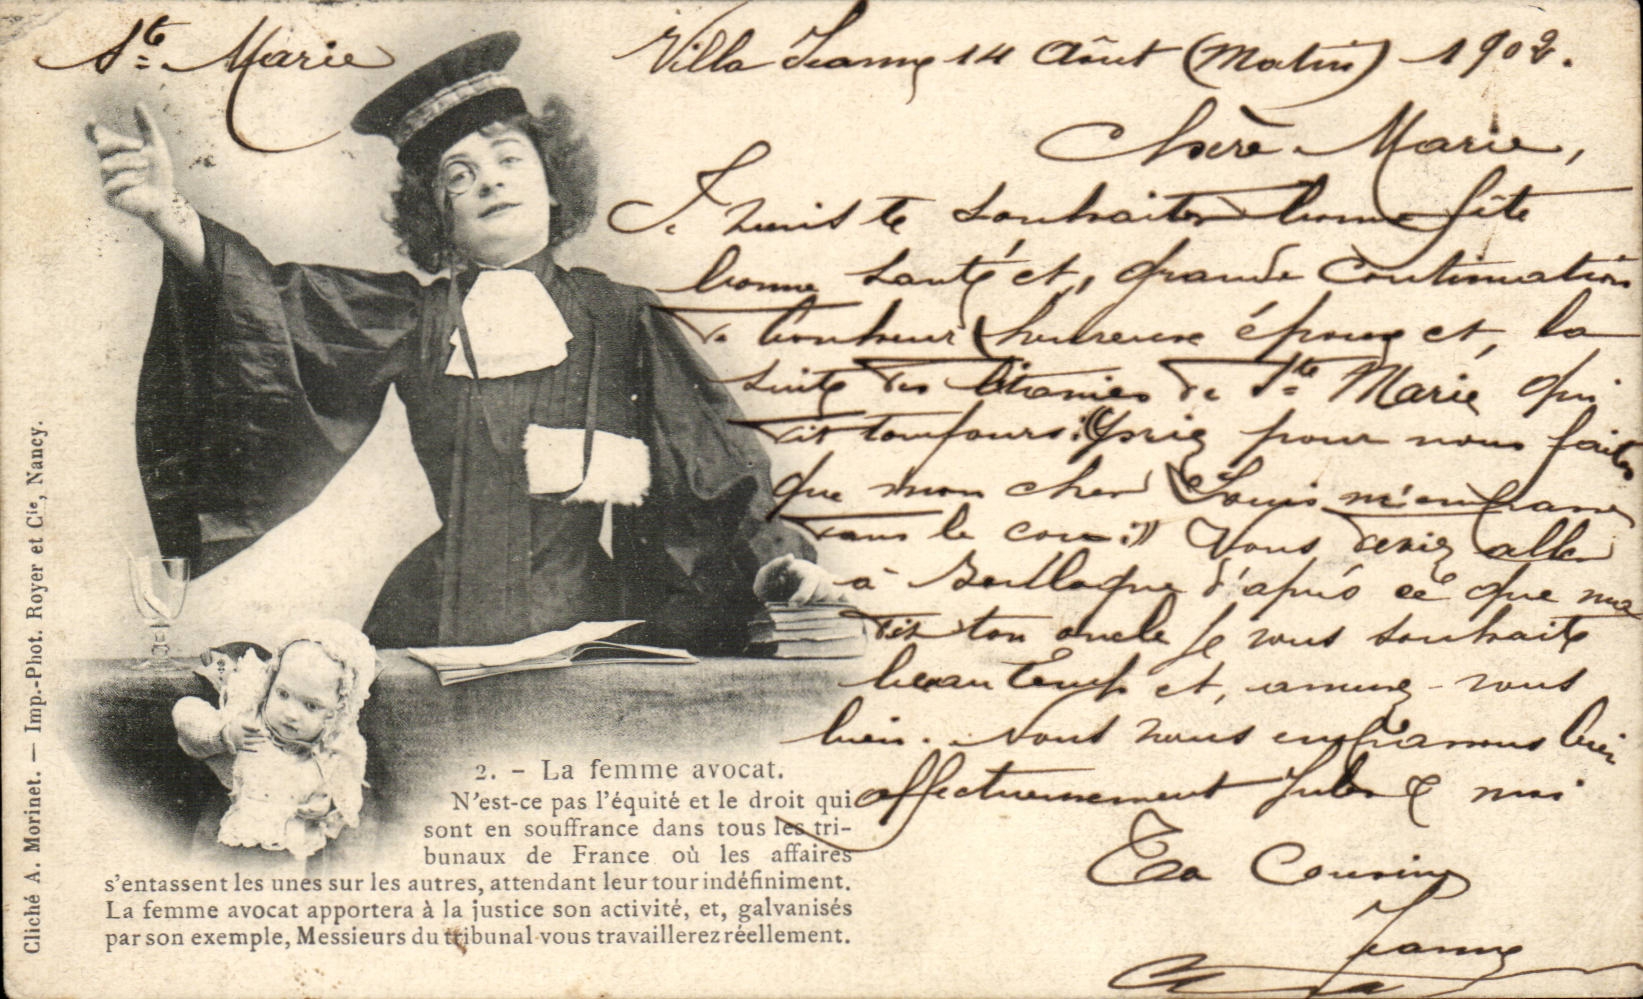 Ste Marie
Villa Jeanne 14 Août (Matin) 1902.
Chère Marie,
Je viens te souhaiter bonne fête
bonne santé et, grande Continuation
de bonheur (heureuse épouse et, la
suite des litanies de Ste Marie qui
dit toujours: (priez pour nous faites
que mon cher Louis m'embrasse
dans le cou:)) Vous deviez aller
à d'après ce que m'a
dit ton oncle je vous souhaite
beau temps et, amusez-vous
bien. Nous vous embrassons bien
affectueusement Jules & moi
Ta Cousine
Jeanne
2. – La femme avocat.
N'est-ce pas l'équité et le droit qui
sont en souffrance dans tous les tri-
bunaux de France où les affaires
s'entassent les unes sur les autres, attendant leur tour indéfiniment.
La femme avocat apportera à la justice son activité, et, galvanisés
par son exemple, Messieurs du tribunal vous travaillerez réellement.
Cliché A. Morinet. — Imp.-Phot. Royer et Cie, Nancy.